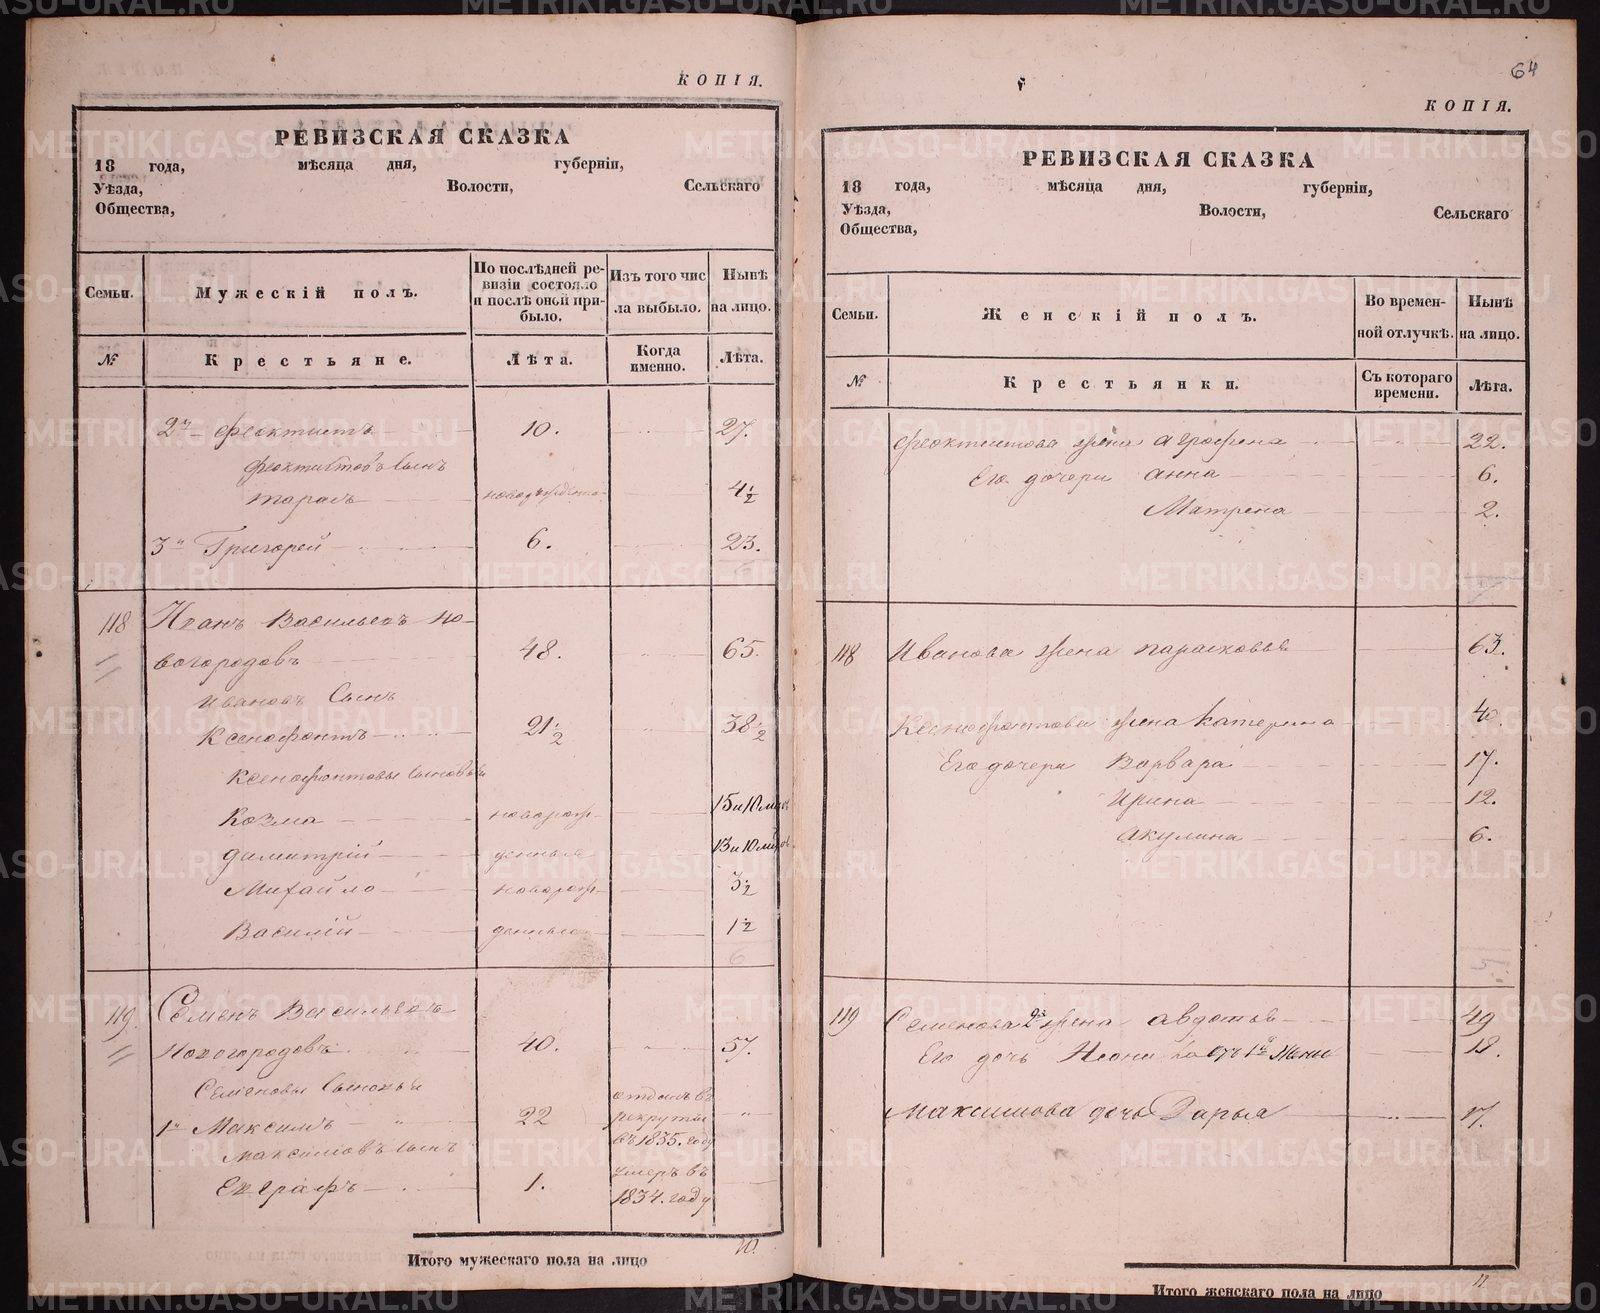 КОПІЯ.
РЕВИЗСКАЯ СКАЗКА
18 года, мѣсяца дня, губерніи,
Уѣзда, Волости, Сельскаго
Общества,
Семьи. Мужескій полъ. По послѣдней ревизіи состояло и послѣ оной прибыло. Изъ того числа выбыло. Нынѣ на лицо.
№ Крестьяне. Лѣта. Когда именно. Лѣта.
2й Феоктистъ 10. 27.
Феоктистовъ сынъ
Тарасъ 4 1/2
3й Григорей 6. 23.
118 Иванъ Васильевъ Но-
вогородовъ 48. 65.
Ивановъ Сынъ
Ксенофонтъ 21 1/2 38 1/2
Ксенофонтовы сыновья
Козма новорож- 15 и 10 мцовъ
Димитрій денные 13 и 10 мцовъ
Михайло новорож- 3 1/2
Василій денные 1 1/2
6
119 Семенъ Васильевъ
Новогородовъ 40. 57.
Семеновы Сыновья
1й Максимъ 22 отданъ въ рекруты въ 1835. году
Максимовъ сынъ
Евграфъ 1. умеръ въ 1834. году
Итого мужескаго пола на лицо 10.
64
КОПІЯ.
РЕВИЗСКАЯ СКАЗКА
18 года, мѣсяца дня, губерніи,
Уѣзда, Волости, Сельскаго
Общества,
Семьи. Женскій полъ. Во временной отлучкѣ. Нынѣ на лицо.
№ Крестьянки. Съ котораго времени. Лѣта.
Феоктистова жена Агрофена 22.
Его дочери Анна 6.
Матрена 2.
118 Иванова жена Парасковья 63.
Ксенофонтова жена Катерина 40.
Его дочери Варвара 17.
Ирина 12.
Акулина 6.
5.
119 Семенова 2я жена Авдотья 49
Его дочь отъ 1й Жены 18.
Максимова дочь Дарья 17.
Итого женскаго пола на лицо 11
METRIKI.GASO-URAL.RU